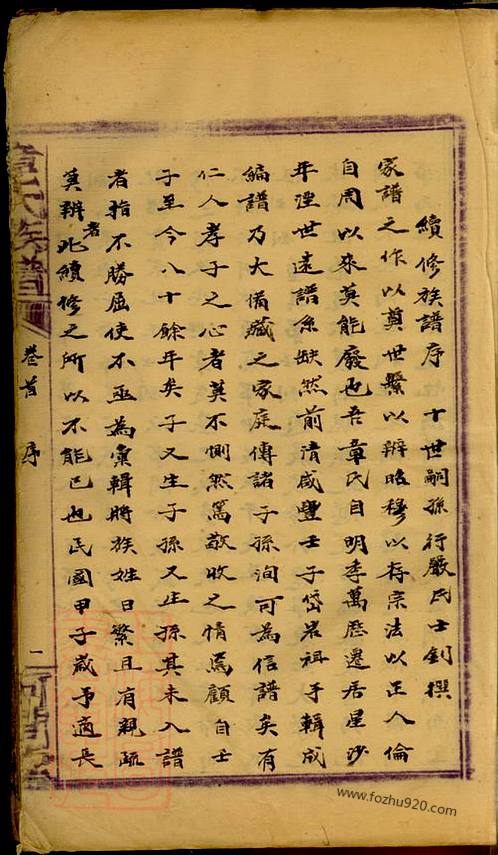 續修族譜序　十世嗣孫行嚴氏士釗撰
家譜之作以奠世繫以辨昭穆以存宗法以正人倫
自周以來莫能廢也吾章氏自明季萬歷遷居星沙
年湮世遠譜系缺然前清咸豐壬子岱岩祖手輯成
編譜乃大備藏之家庭傳諸子孫洵可為信譜矣有
仁人孝子之心者莫不惻然篤敬收之情焉顧自壬
子至今八十餘年矣子又生子孫又生孫其未入譜
者指不勝屈使不亟為彙輯將族姓日繁且有親疏
莫辨者此續修之所以不能已也民國甲子歲予適長
章氏族譜
卷首　序
一
www.fozhu920.com